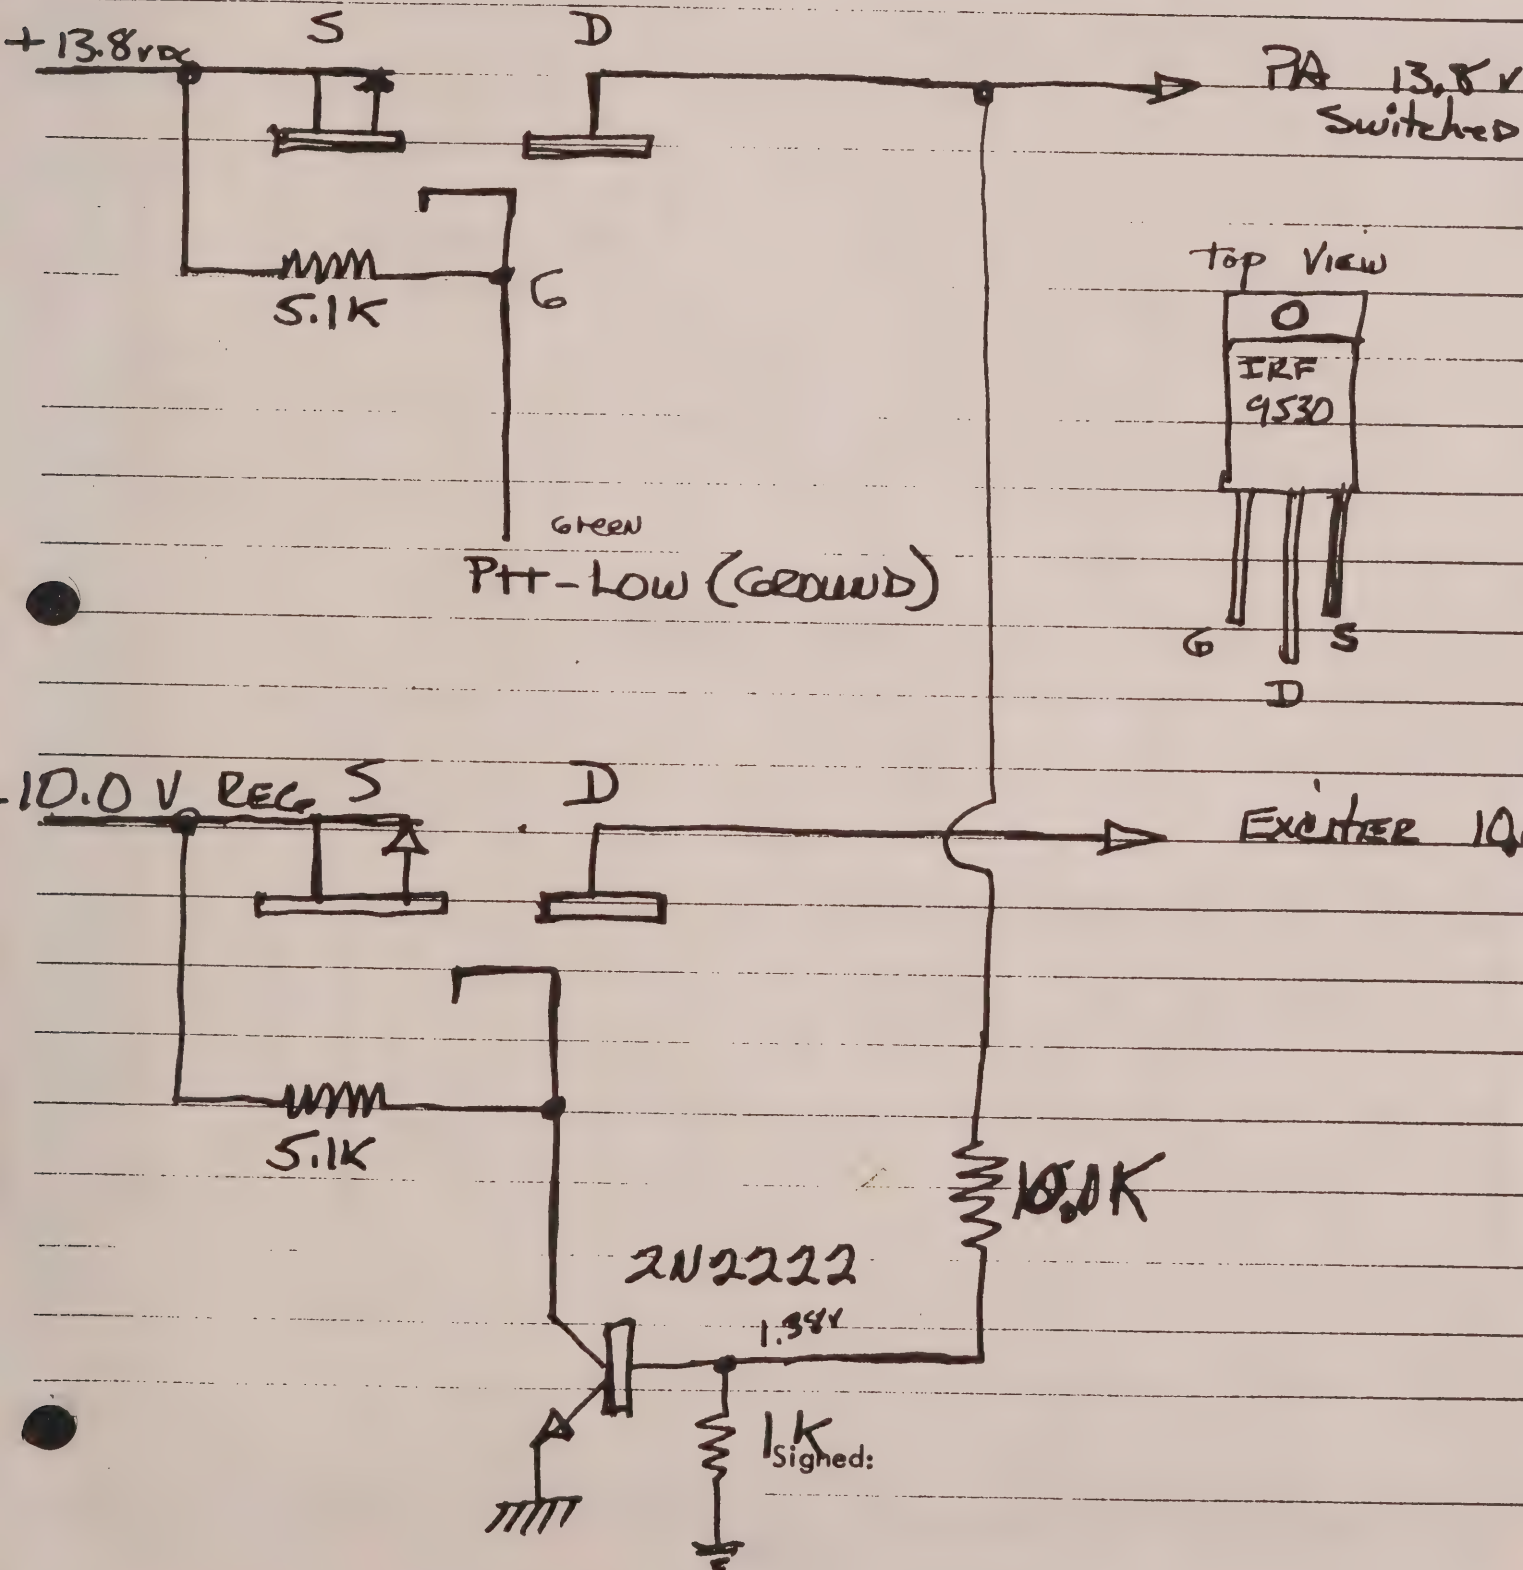 S D
+13.8VDC
PA 13.8 V
Switched
5.1K
G
Top View
O
IRF
9530
Green
PTT-LOW (GROUND)
G S
D
10.0 V REG S D
EXCITER 10.
5.1K
2N2222
1.38V
1K
Signed: